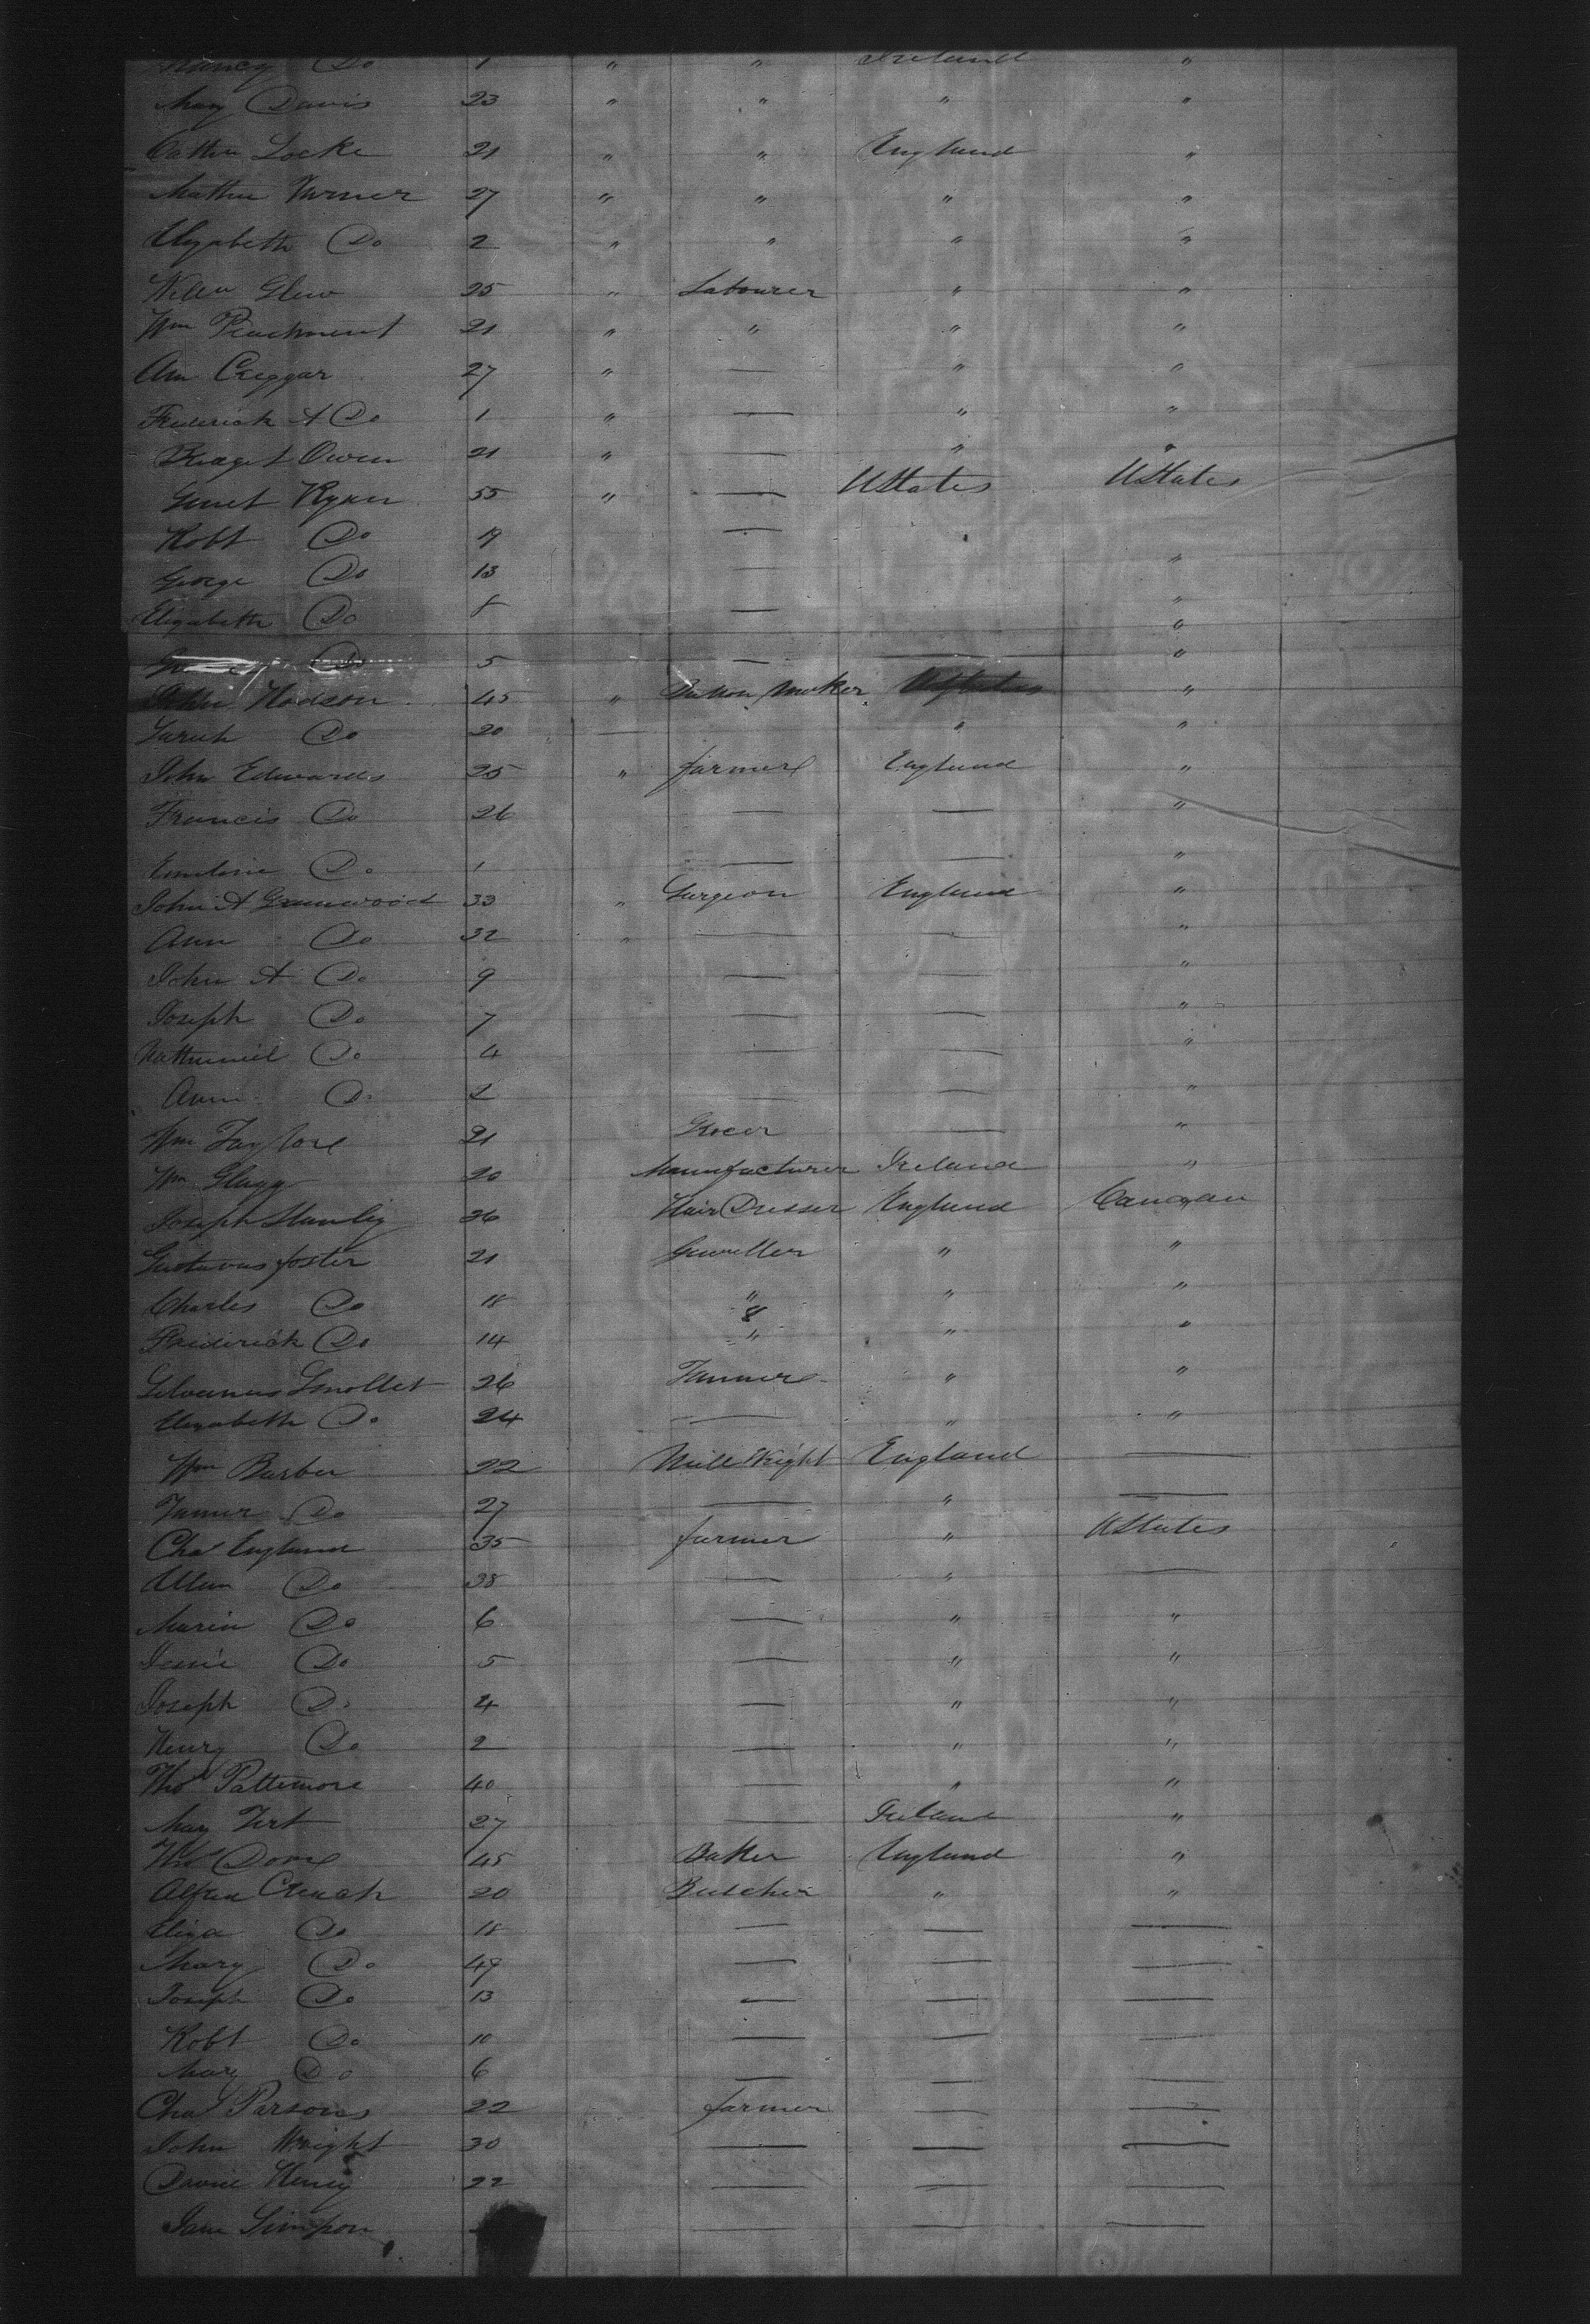 Nancy Do 1 " " Ireland "
Mary Davis 23 " " " "
Locke 21 " " England "
Turner 27 " " " "
Elizabeth Do 2 " " " "
Glew 25 " Labourer " "
Wm 21 " " " "
Ann 27 " — " "
Frederick A Do 1 " — " "
Owen 21 " — " "
Ryan 55 " — UStates UStates
Robt Do 19 —
George Do 13 — "
Elizabeth Do 8 — "
Do 5 — — "
Hodson 45 " Button Maker "
Sarah Do 20 — " "
John Edwards 25 " farmer England "
Francis Do 26 — — "
Emeline Do 1 — — "
John A Greenwood 33 " Surgeon England "
Ann Do 32 " — — "
John A Do 9 — — "
Joseph Do 7 — — "
Nathaniel Do 4 — — "
Ann Do 2 — — "
Wm Taylore 21 Grocer — "
Wm Glagg 20 Manufacturer Ireland "
Joseph Stanley 36 Hair Dresser England
Gustavus foster 21 " "
Charles Do 18 " " "
8
Frederick Do 14 " " "
Smollet 26 Tanner " "
Elizabeth Do 24 — " "
Wm Barber 22 Mill Wright England —
Do 27 — " —
Chas England 35 farmer " UStates
Do 38 — " —
Maria Do 6 — " "
Do 5 — " "
Joseph Do 4 — " "
Henry Do 2 — " "
Thos Pattemore 40 — " "
May 27 — Ireland "
Thos 45 Baker England "
20 Butcher " "
Eliza Do 18 — — —
Mary Do 49 — — —
Joseph Do 13 — — —
Robt Do 10 — — —
Mary Do 6 — — —
Chas Parsons 22 farmer — —
John Wright 30 — — —
Henry 22 — — —
Jane Simpson — — —